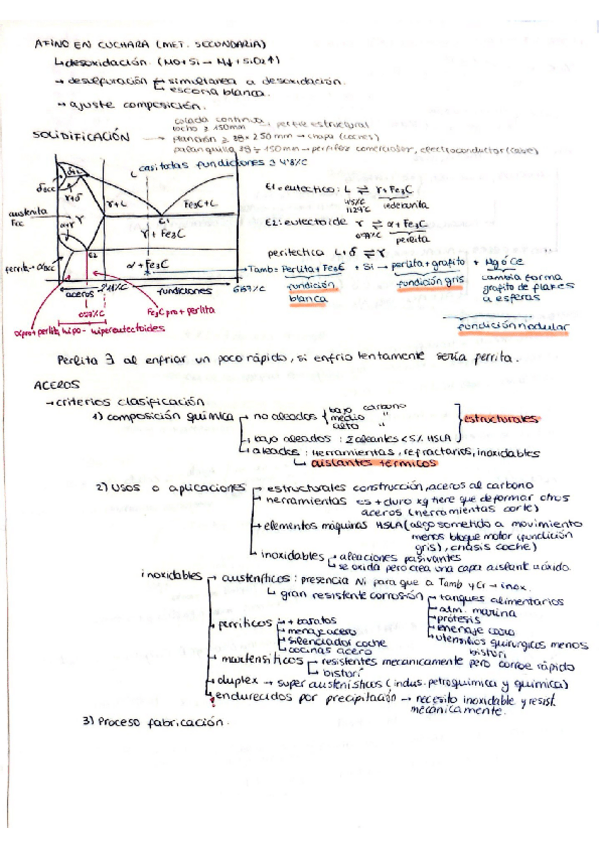 AFINO EN CUCHARA (MET. SECUNDARIA)
↳ desoxidación (MO + Si → M↓ + SiO2↑)
→ desulfuración simultanea a desoxidación.
escoria blanca.
→ ajuste composición.
SOLIDIFICACIÓN
colada continua
tocho ≥ 150mm → perfil estructural
planchón ≥ 88 × 250 mm → chapa (coches)
palanquilla 88 ÷ 150mm → perfiles comerciales, electroconductor
L casi todas fundiciones ≥ 4'3%C
δBCC
δ+L
γ+δ
γ+L
Fe3C+L
austenita FCC
γ
α+γ
E1
γ + Fe3C
E2
ferrita → αBCC
α + Fe3C
aceros 2'11%C fundiciones 6'67%C
0'77%C
Fe3C pro + perlita
α pro + perlita
hipo- hipereutectoides
E1: eutéctico: L ⇌ γ + Fe3C
ledeburita
E2: eutectoide γ ⇌ α + Fe3C
0'77%C perlita
peritectica L + δ ⇌ γ
→ Tamb = Perlita + Fe3C + Si → perlita + grafito + Mg ó Ce
fundición blanca
fundición gris
cambia forma grafito de flakes a esferas
fundición nodular
Perlita ∃ al enfriar un poco rápido, si enfrio lentamente sería ferrita.
ACEROS
→ criterios clasificación
1) composición química
no aleados bajo carbono
medio "
alto "
bajo aleados: Σaleantes < 5% HSLA
estructurales
aleados: Herramientas, refractarios, inoxidables
↳ aislantes térmicos
2) Usos o aplicaciones
estructurales construcción, aceros al carbono
herramientas es + duro xq tiene que deformar otros
aceros (herramientas corte)
elementos máquinas HSLA (algo sometido a movimiento
menos bloque motor (fundición
gris), chasis coche)
inoxidables → aleaciones pasivantes
↳ se oxida pero crea una capa aislante u óxido.
inoxidables
austeníticos: presencia Ni para que a Tamb γ Cr → inox.
↳ gran resistente corrosión
tanques alimentarios
atm. marina
prótesis
menaje caro
utensilios quirurgicos menos
bisturí
ferríticos
+ baratos
menaje acero
silenciador coche
cocinas acero
martensíticos
resistentes mecanicamente pero corroe rápido
bisturí
duplex → super austeníticas (indus. petroquimica y quimica)
endurecidos por precipitación → necesito inoxidable y resist.
mecánicamente.
3) Proceso fabricación.